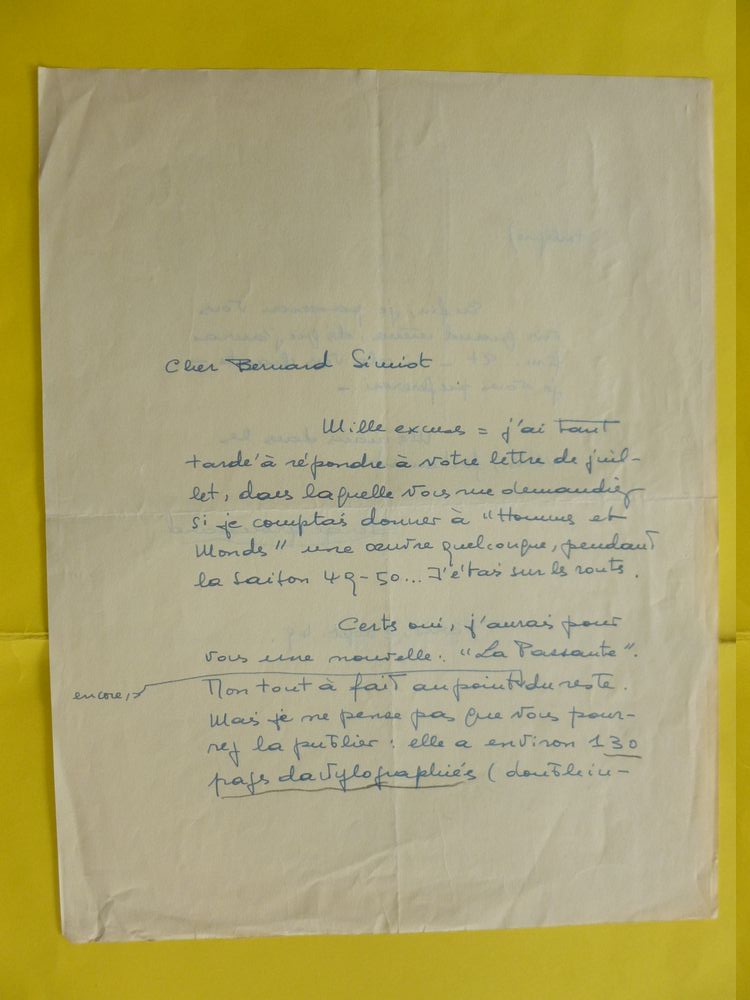 Cher Bernard Simiot
Mille excuses = j'ai tant
tardé à répondre à votre lettre de juil-
let, dans laquelle vous me demandiez
si je comptais donner à "Hommes et
Mondes" une œuvre quelconque, pendant
la saison 49-50... J'étais sur les routes.
Certes oui, j'aurais pour
vous une nouvelle. "La Passante".
encore,
Non tout à fait au point du reste.
Mais je ne pense pas que vous pour-
rez la publier : elle a environ 130
pages dactylographiées (double in-